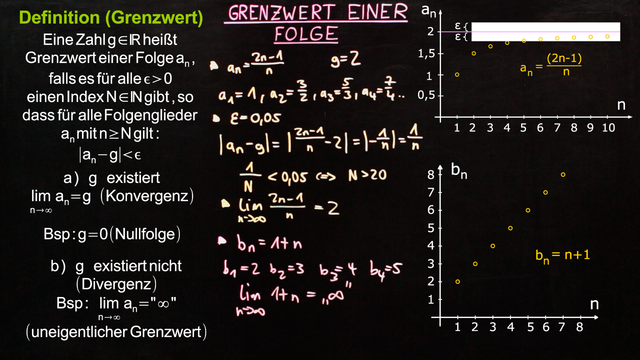 Definition (Grenzwert)
Eine Zahl g∈ℝ heißt
Grenzwert einer Folge aₙ,
falls es für alle ϵ>0
einen Index N∈ℕ gibt, so
dass für alle Folgenglieder
aₙ mit n≥N gilt:
|aₙ−g|<ϵ
a) g existiert
lim aₙ=g (Konvergenz)
n→∞
Bsp: g=0 (Nullfolge)
b) g existiert nicht
(Divergenz)
Bsp: lim aₙ="∞"
n→∞
(uneigentlicher Grenzwert)
GRENZWERT EINER
FOLGE
aₙ = (2n-1)/n g=2
a₁=1, a₂=3/2, a₃=5/3, a₄=7/4..
ε=0,05
|aₙ-g|=|(2n-1)/n -2|=|-1/n|=1/n
1/N < 0,05 ⇔ N>20
lim (2n-1)/n = 2
n→∞
bₙ=1+n
b₁=2 b₂=3 b₃=4 b₄=5
lim 1+n = „∞"
n→∞
aₙ
ε{
ε{
2
1,5
1
0,5
aₙ = (2n-1)/n
n
1 2 3 4 5 6 7 8 9 10
bₙ
8
7
6
5
4
3
2
1
bₙ = n+1
n
1 2 3 4 5 6 7 8